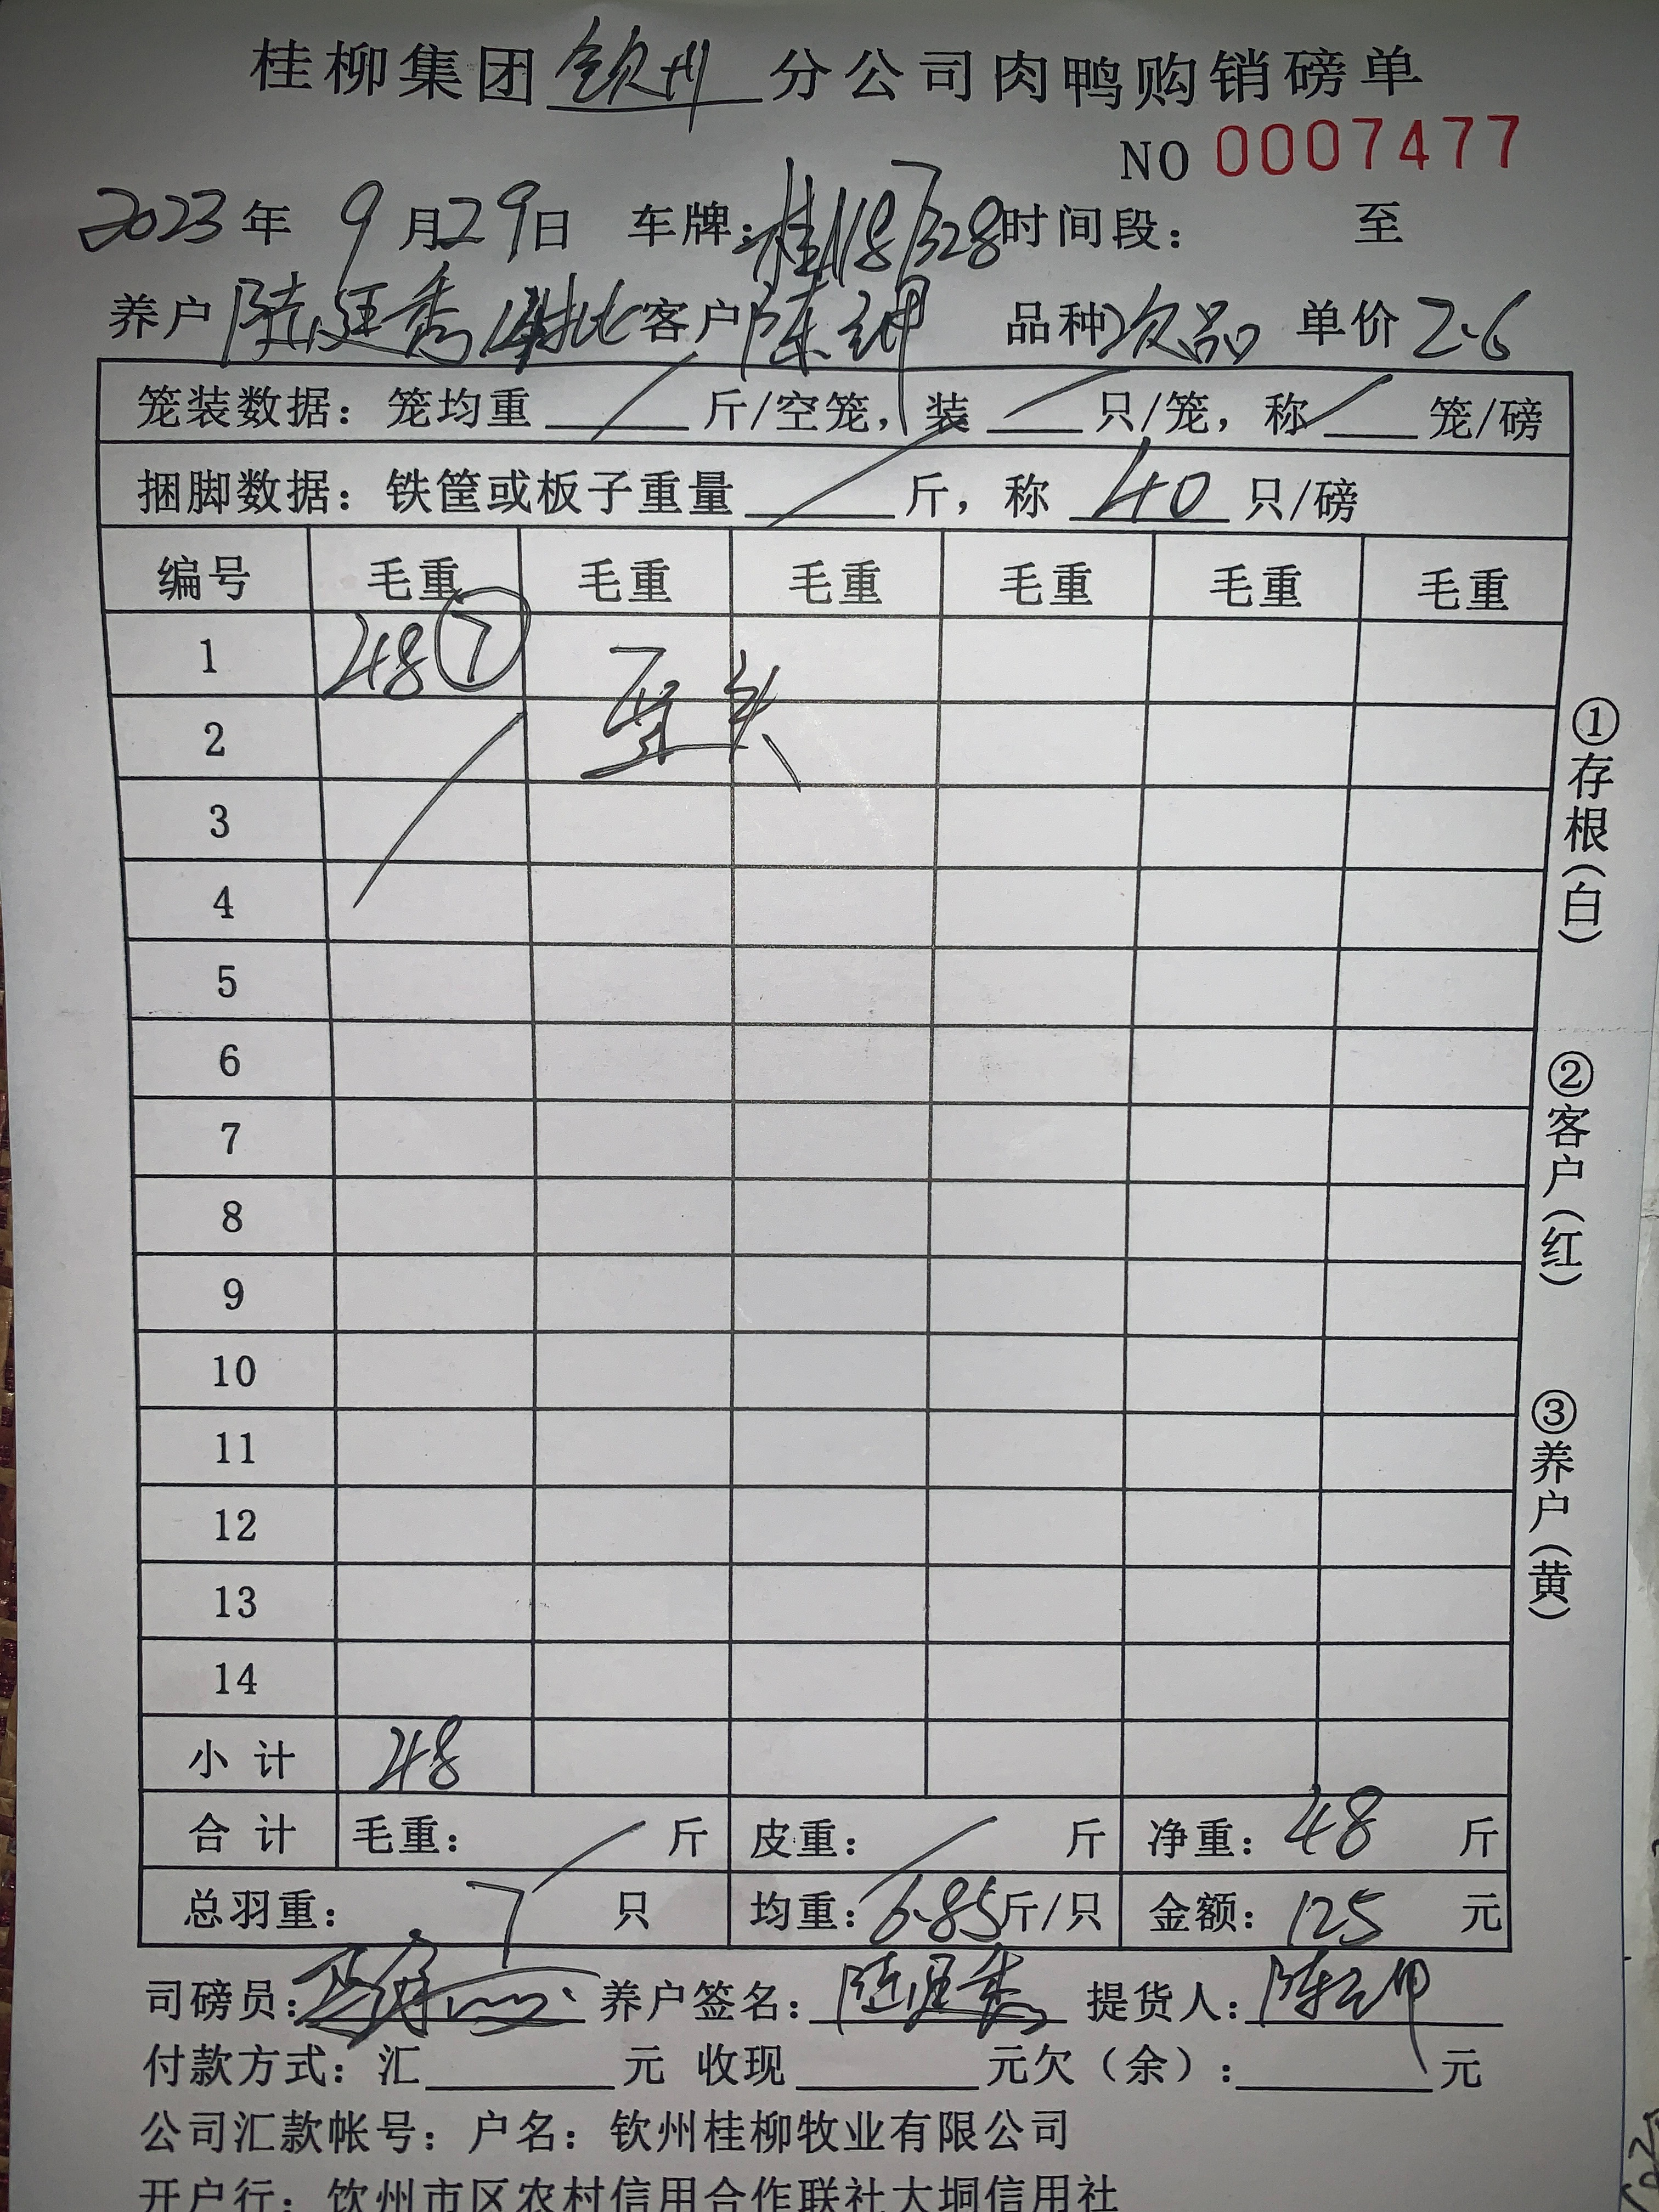 桂柳集团钦州分公司肉鸭购销磅单
NO 0007477
2023年 9月29日 车牌：桂 时间段： 至
养户 陆廷秀 批 客户 陈 品种 次品 单价 2.6
笼装数据：笼均重 斤/空笼，装 只/笼，称 笼/磅
捆脚数据：铁筐或板子重量 斤，称 40 只/磅
编号 毛重 毛重 毛重 毛重 毛重 毛重
1 48 ⑦
2
3
4
5
6
7
8
9
10
11
12
13
14
小计 48
合计 毛重： 斤 皮重： 斤 净重：48 斤
总羽重：7 只 均重：6.85斤/只 金额：125 元
司磅员： 养户签名：陆廷秀 提货人：陈
付款方式：汇 元 收现 元欠（余）： 元
公司汇款帐号：户名：钦州桂柳牧业有限公司
开户行：钦州市区农村信用合作联社大垌信用社
①存根（白）
②客户（红）
③养户（黄）